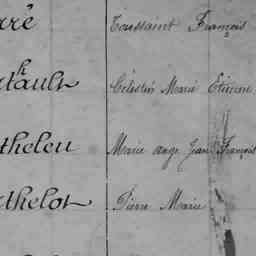 rré Toussaint François
rthault Célestin Marie Etienne
theleu Marie ange Jean François
thelot Pierre Marie